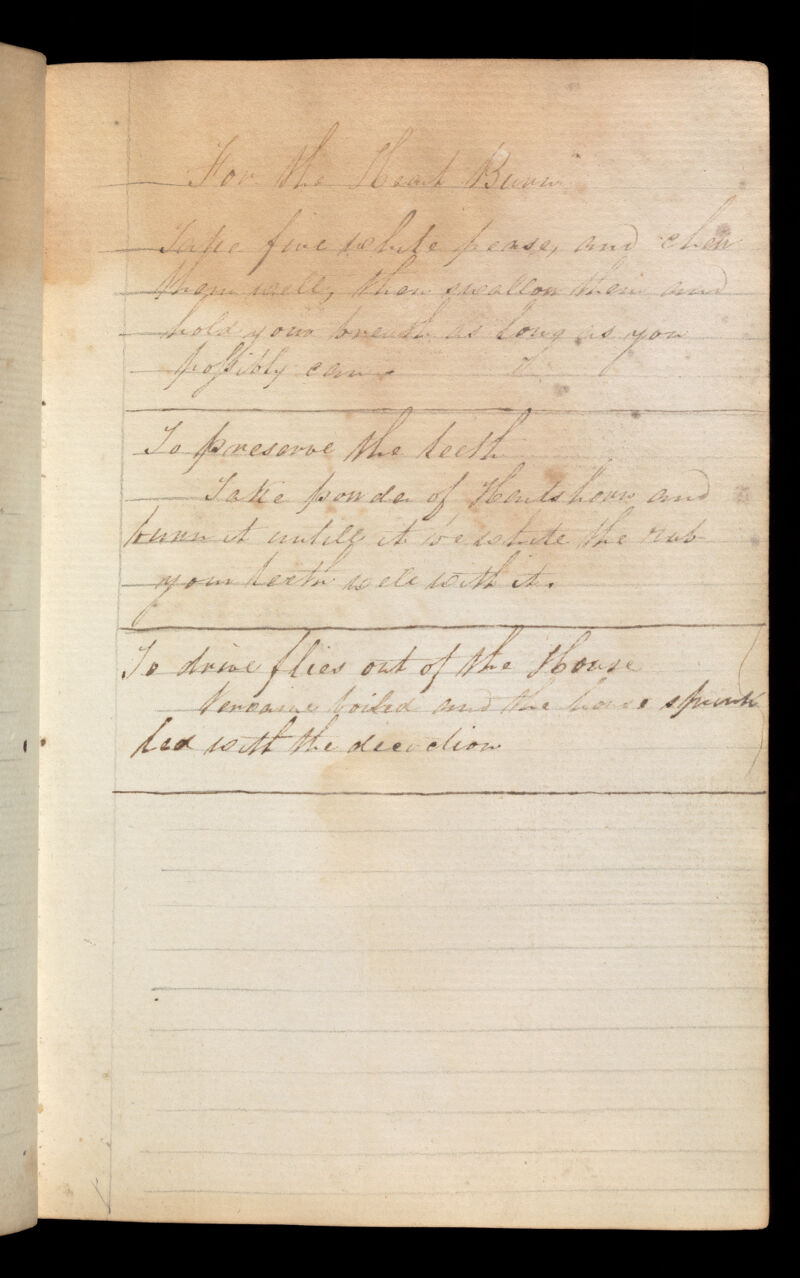 For the Heart Burn
Take five white pease, and chew
them well, then swallow them and
hold your breath as long as you
possibly can.
To preserve the teeth
Take powder of Hartshorn and
burn it untill it be white the rub
your teeth well with it.
To drive flies out of the House
Vervaine boiled and the house sprink
led with the decoction